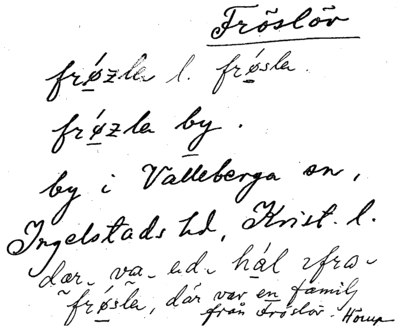 Fröslöv
frǿzla l. frǿsla.
frǿzla by.
by i Valleberga sn,
Ingelstads hd, Krist. l.
dær- va- ed- hál ifra-
frǿsla, där var en familj
från Fröslöv. Hörup